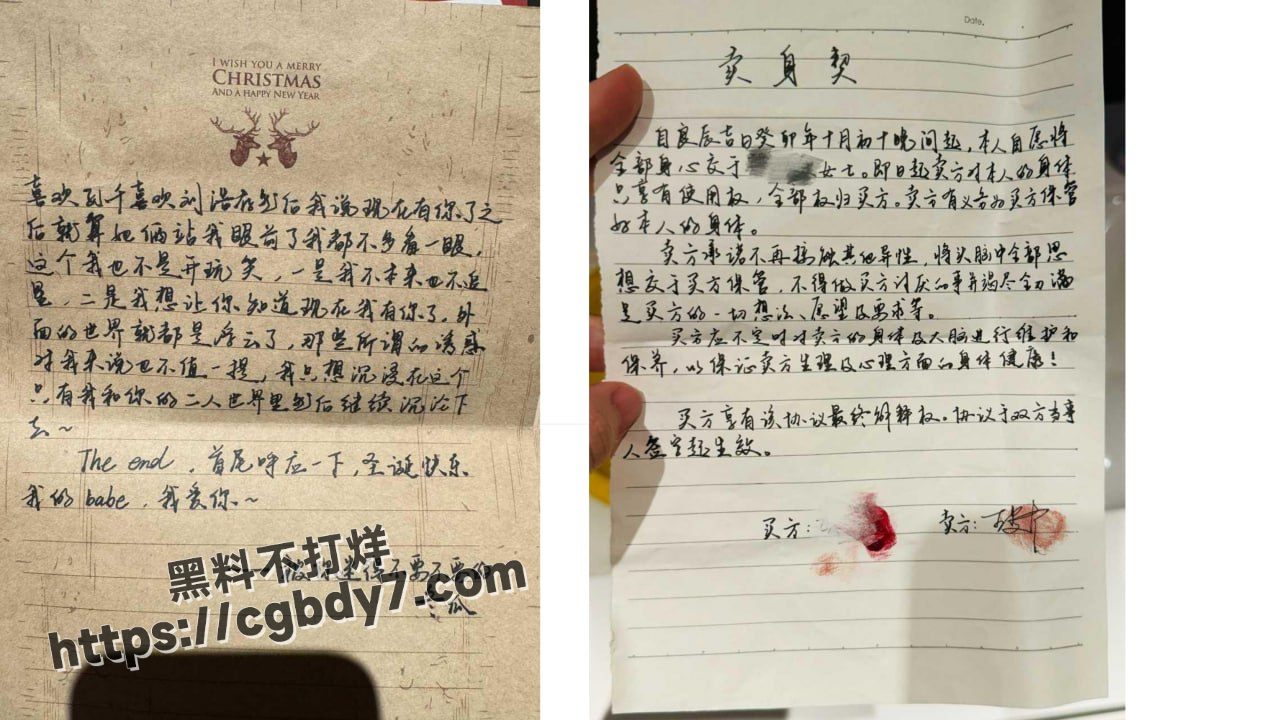 I WISH YOU A MERRY
CHRISTMAS
AND A HAPPY NEW YEAR
喜欢到千喜欢刘浩存到后我说现在有你了之
后就算她俩站我眼前了我都不多看一眼,
这个我也不是开玩笑,一是我不本来也不追
星,二是我想让你知道现在我有你了,外
面的世界就都是浮云了,那些所谓的诱惑
对我来说也不值一提,我只想沉浸在这个
只有我和你的二人世界里到后继续沉沦下
去~
The end,首尾呼应一下,圣诞快乐
我的babe,我爱你~
黑料不打烊
https://cgbdy7.com
瓜
Date.
卖身契
自良辰吉日癸卯年十月初十晚间起,本人自愿将
全部身心交于 女士。即日起卖方对本人的身体
只享有使用权,全部权归买方。卖方有义务为买方保管
好本人的身体。
卖方承诺不再接触其他异性,将头脑中全部思
想交于买方保管,不得做买方讨厌的事并竭尽全力满
足买方的一切想法、愿望及要求等。
买方应不定时对卖方的身体及大脑进行维护和
保养,以保证卖方生理及心理方面的身体健康!
买方享有该协议最终解释权。协议于双方当事
人签字起生效。
买方: 卖方: